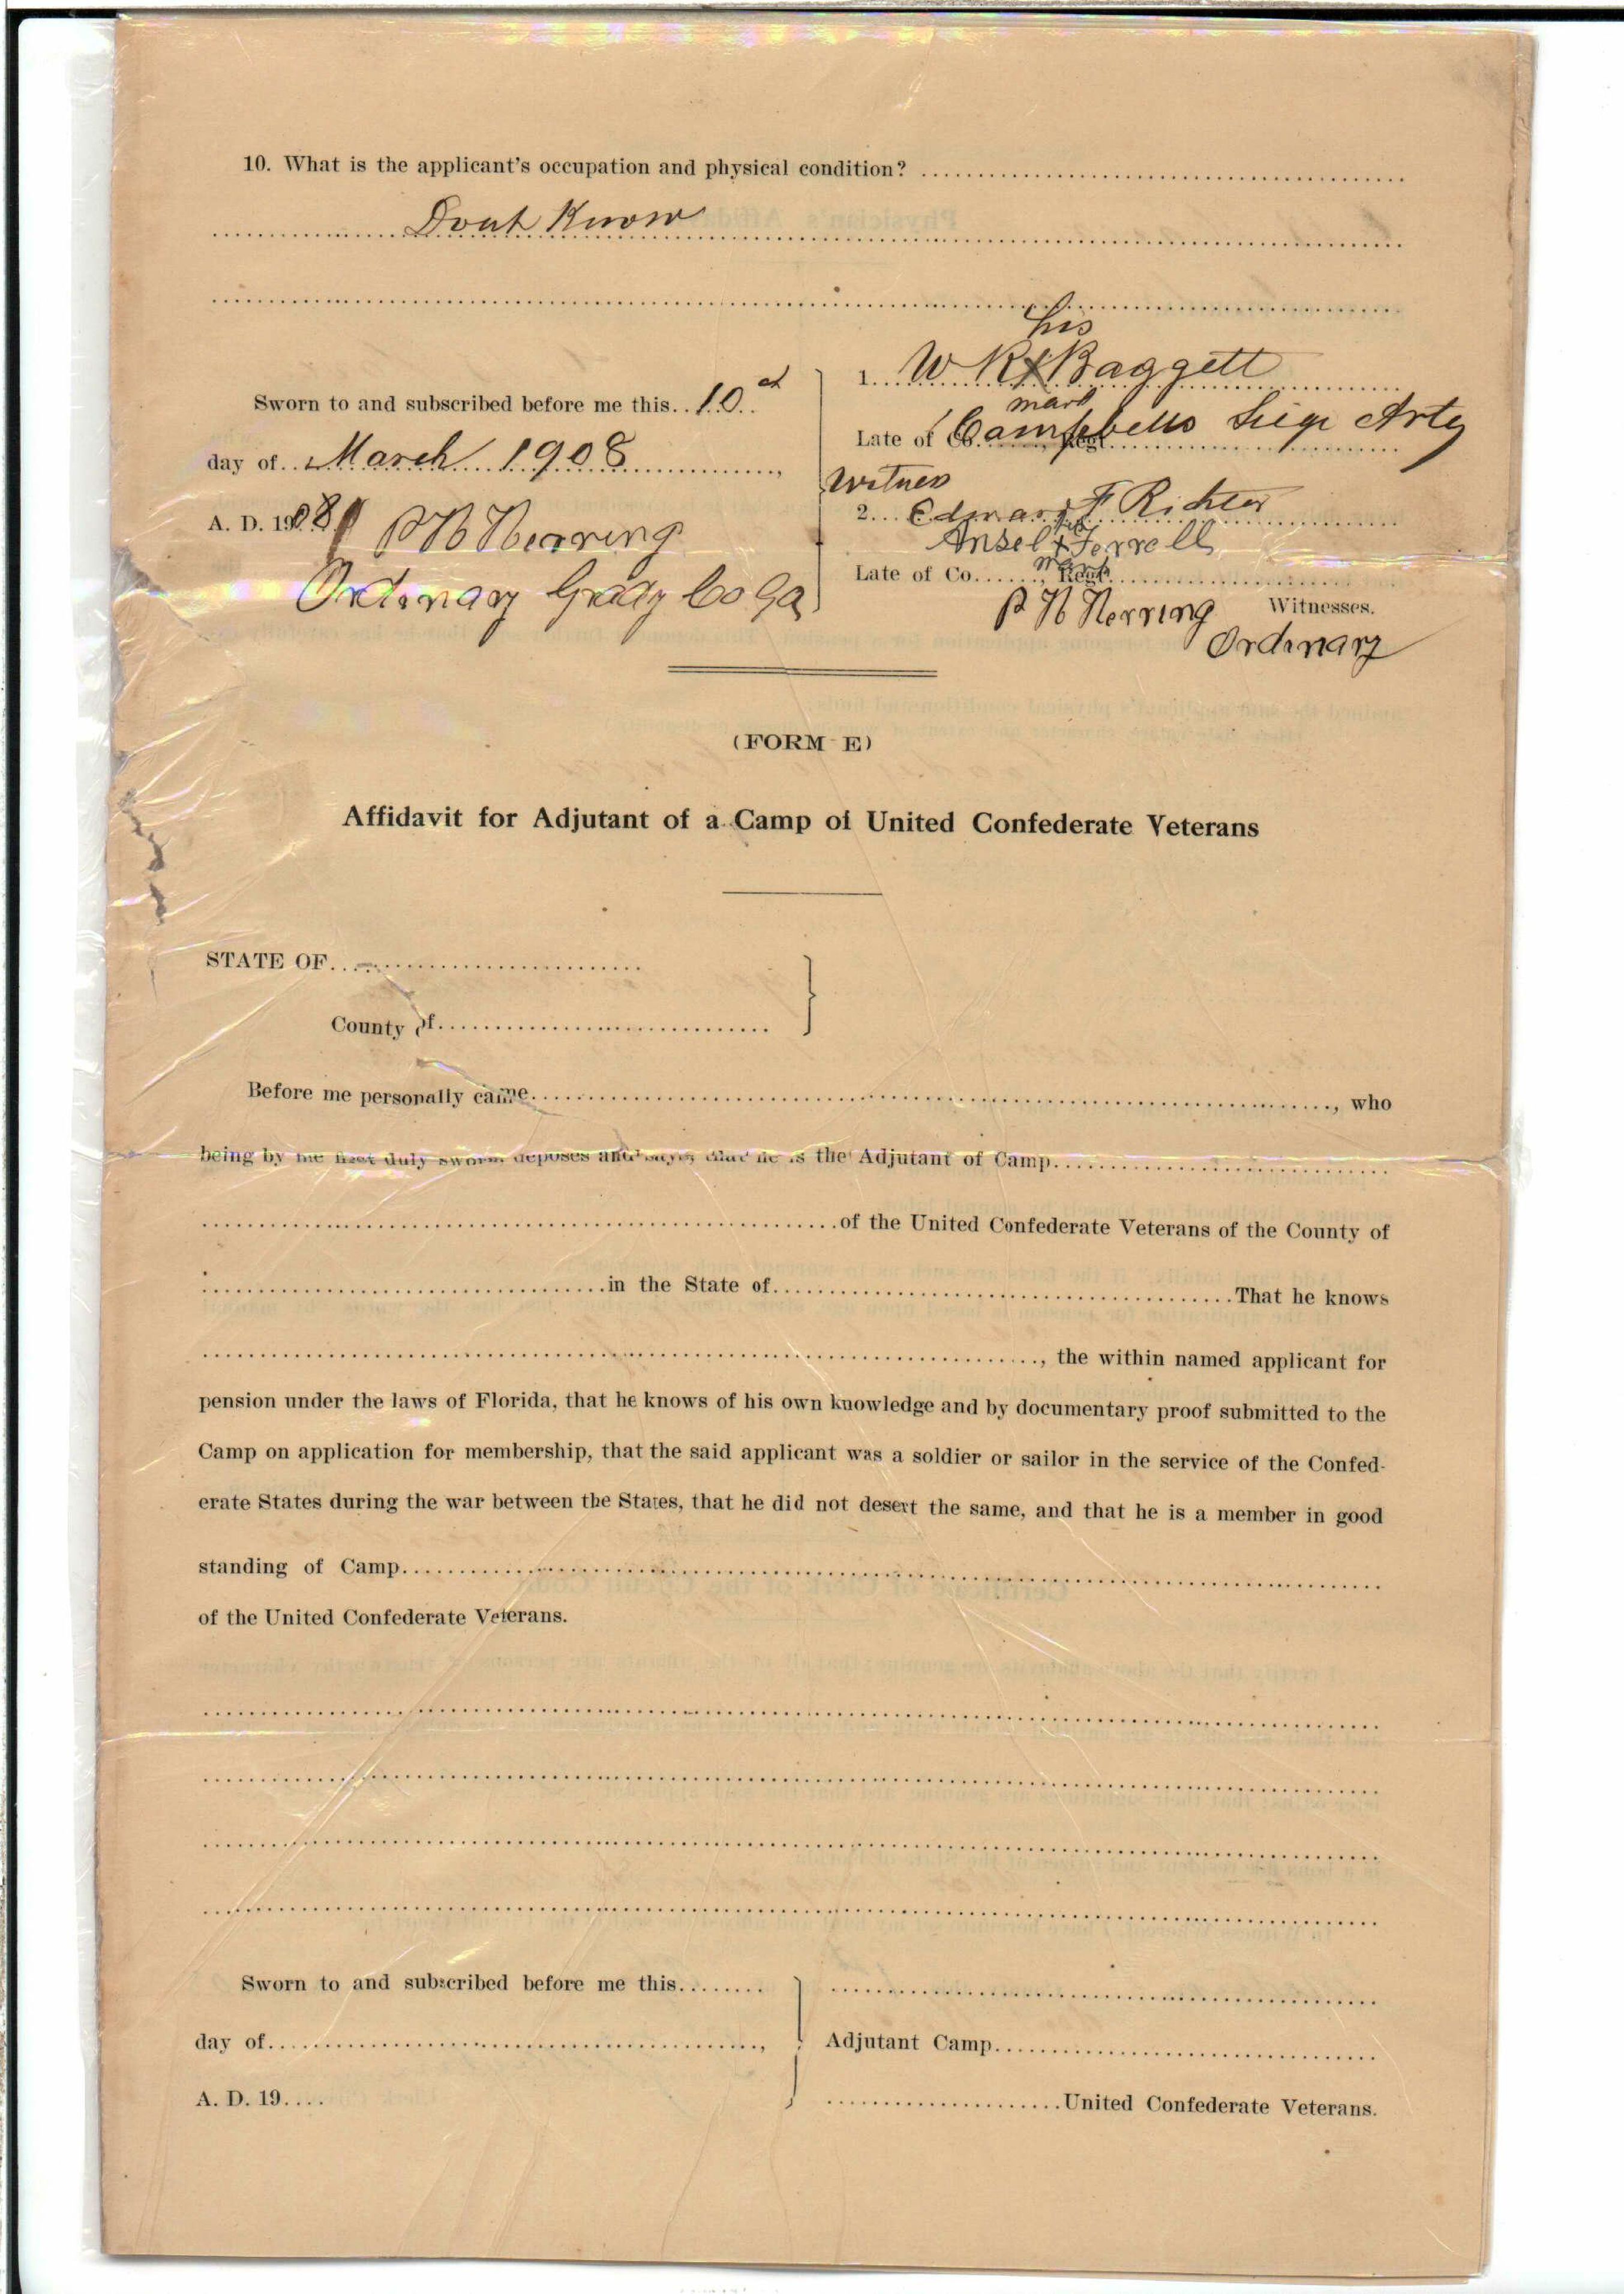 10. What is the applicant's occupation and physical condition?
Dont Know
his
1. W R X Baggett
mark
Sworn to and subscribed before me this 10
Late of Co. Regt. Campbells Siege Arty
day of March 1908,
Witness
A. D. 1908
2. Edward F Richter
P H Herring
his
Ansel X Ferrell
mark
Late of Co......, Regt.
Ordinary Grady Co Ga
P H Herring Witnesses.
Ordinary
(FORM E)
Affidavit for Adjutant of a Camp of United Confederate Veterans
STATE OF
County of
Before me personally came, who
being by me first duly sworn deposes and says, that he is the Adjutant of Camp
of the United Confederate Veterans of the County of
in the State of That he knows
, the within named applicant for
pension under the laws of Florida, that he knows of his own knowledge and by documentary proof submitted to the
Camp on application for membership, that the said applicant was a soldier or sailor in the service of the Confed-
erate States during the war between the States, that he did not desert the same, and that he is a member in good
standing of Camp
of the United Confederate Veterans.
Sworn to and subscribed before me this
day of,
Adjutant Camp
A. D. 19....
United Confederate Veterans.